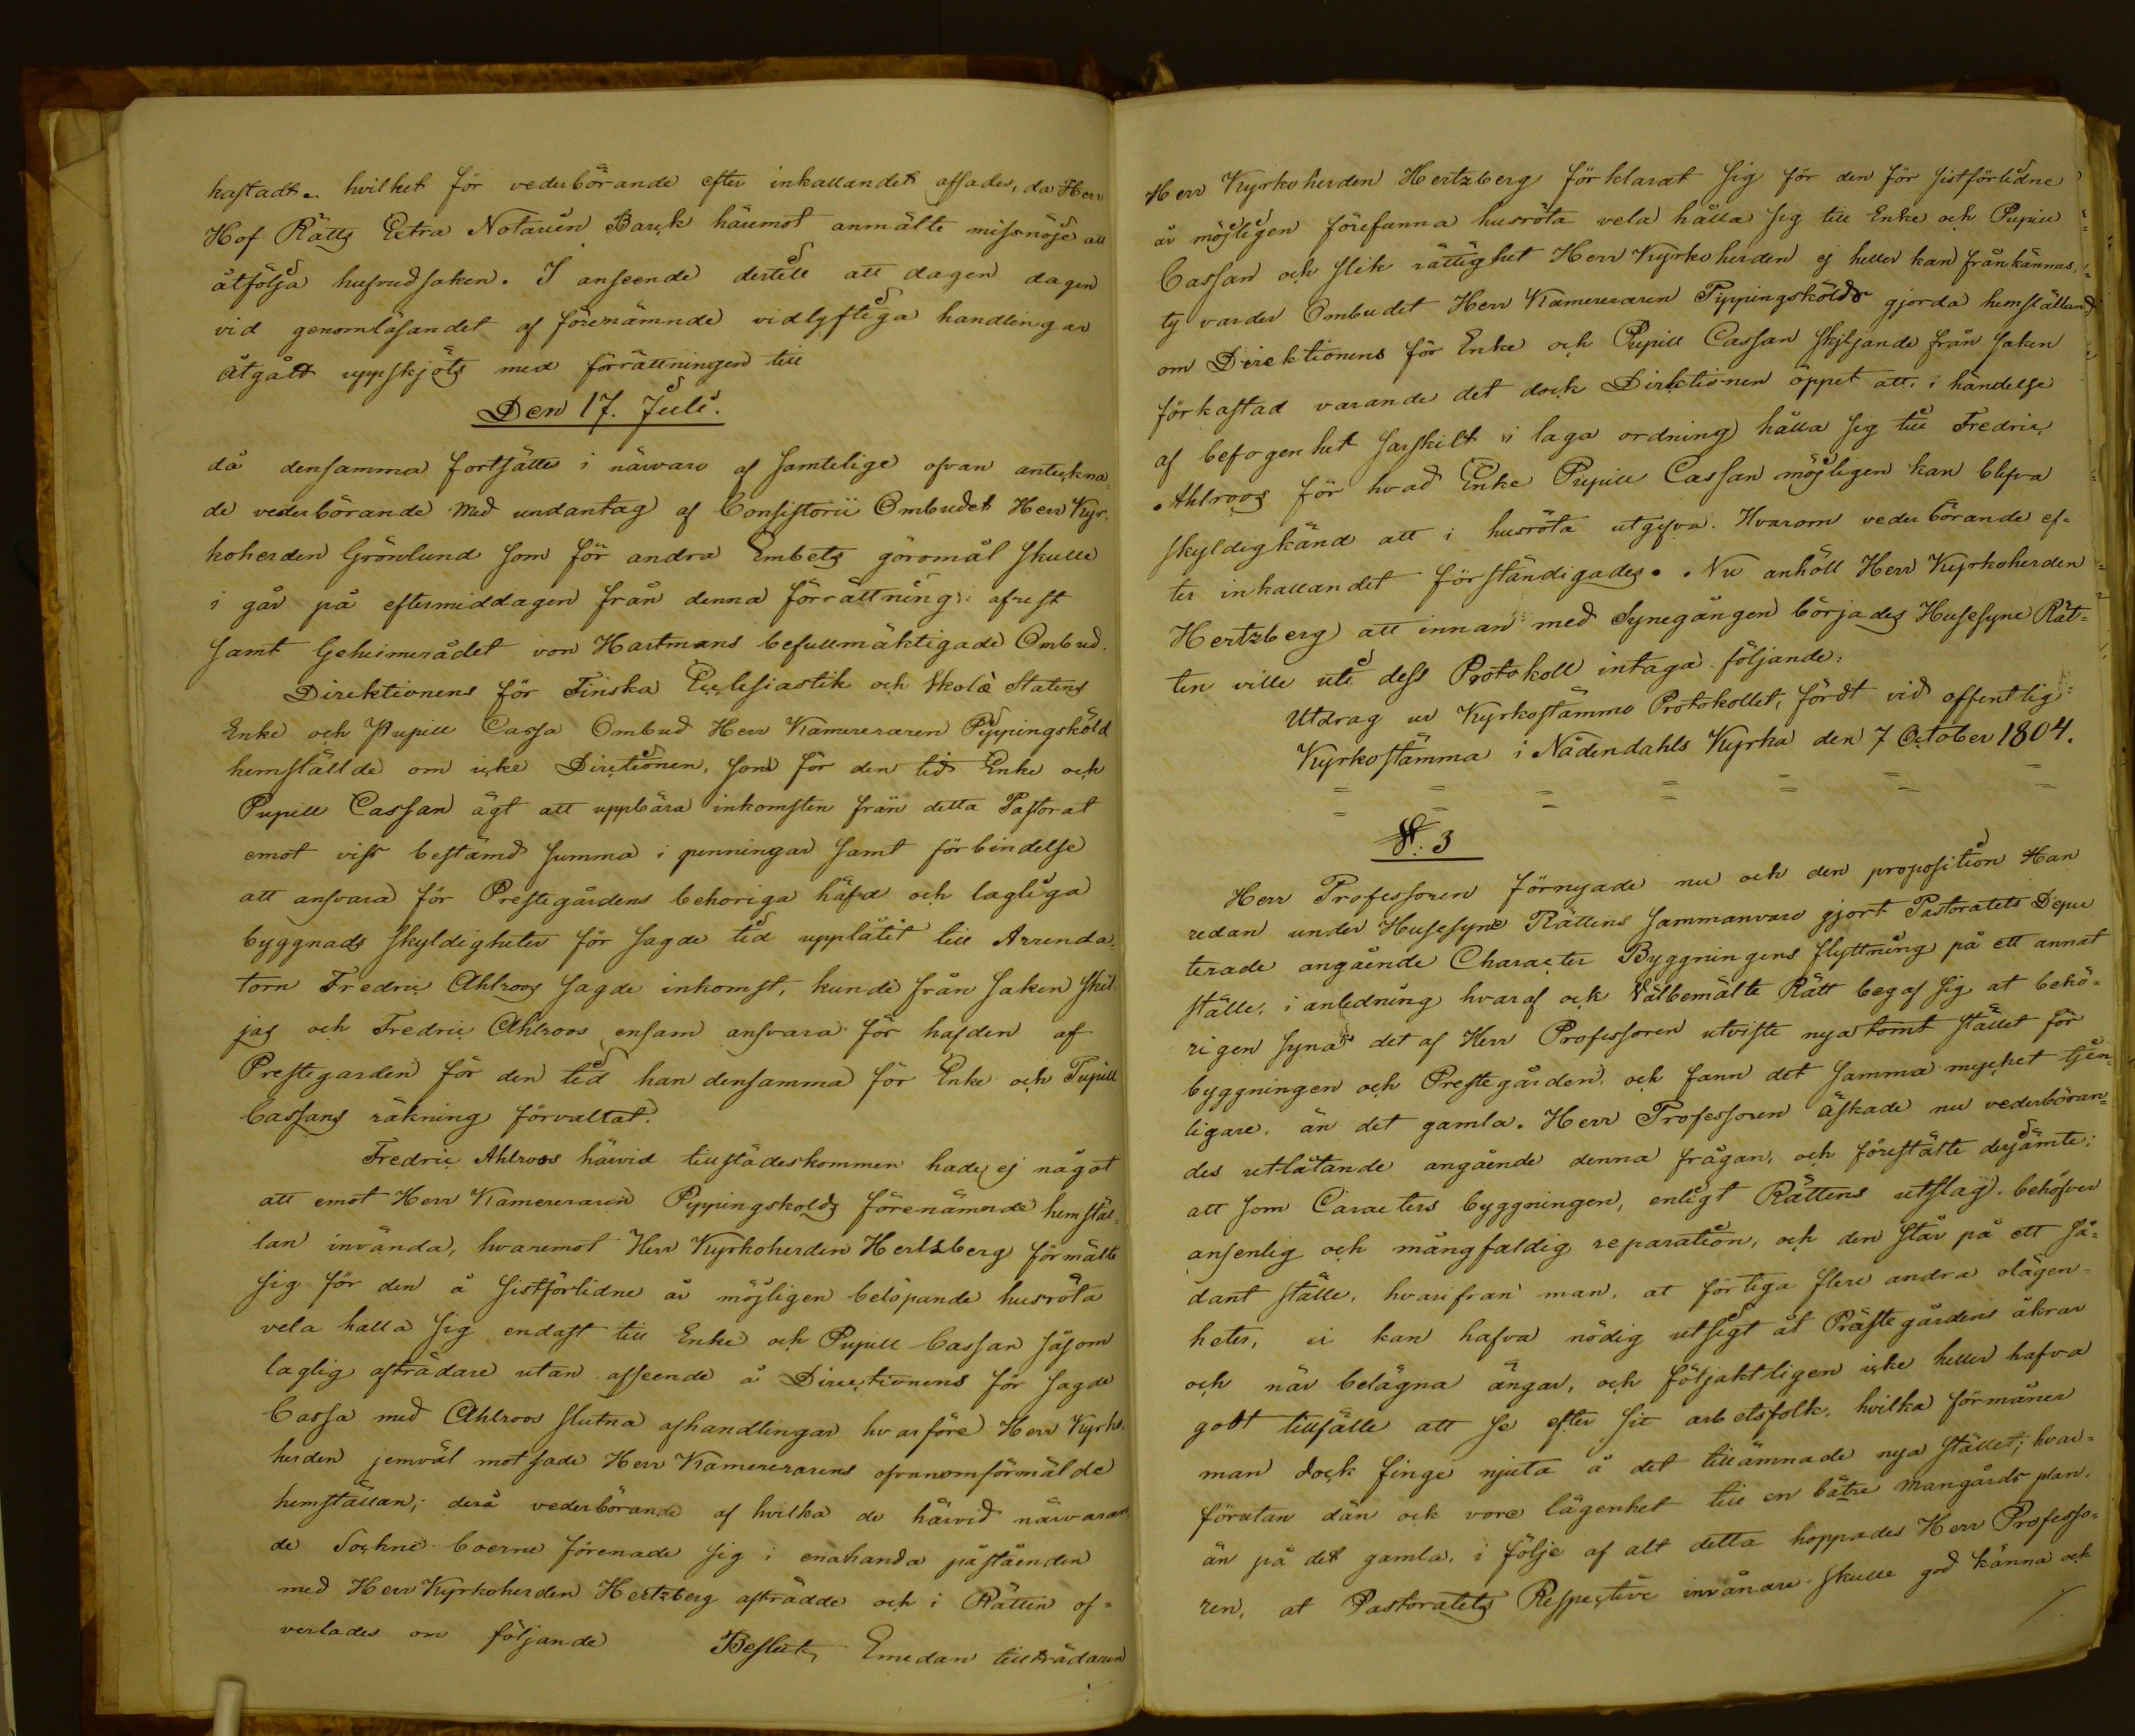 kastadt hvilket för vederbörande efter inkallandet afsades, da Herr
Hof Rätts Extra Notarien Barck häremot anmälte missnöje att
åtfölja hufvudsaken. I anseende dertill att dagen dagen
vid genomläsandet af förenämnde vidlyftiga handlingar
åtgått uppskjöts med förrättningen till
Den 17. Juli.
då densamma fortsätts i närvaro af samtelige ofvan antekna-
de vederbörande med undantag af Consistorii Ombudet Herr Kyr-
koherden Grönlund som för andra Embets göromål skulle
i går på eftermiddagen från denna förrättning afrest
samt Geheimerådet von Hartmans befullmäktigade Ombud.
Direktionens för Finska Ecclesiastik och Skole Statens
Enke och Pupill Cassa Ombud Herr Kamereraren Pippingsköld
hemställde om icke Directionen, som för den tid Enke och
Pupill Cassan ägt att uppbära inkomsten från detta Pastorat
emot viss bestämd summa i penningar samt förbindelse
att ansvara för Prestegårdens behoriga häfd och lagliga
byggnads skyldigheter för sagde tid upplåtit till Arrenda-
torn Fredric Ahlroos sagde inkomst, kunde från saken skil-
jas och Fredric Ahlroos ensam ansvara för hafden af
Prestegarden för den tid han densamma för Enke och Pupill
Cassans räkning förvaltat.
Fredric Ahlroos härvid tillstädeskommen hade ej något
att emot Herr Kamereraren Pippingskolds förenämnde hemstäl-
lan invända, hvaremot Herr Kyrkoherden Hertzberg förmälte
sig för den å sistförlidne år möjligen belöpande husröta
vela halla sig endast till Enke och Pupill Cassan såsom
laglig afträdare utan afseende å Directionens för sagde
Cassa med Ahlroos slutna afhandlingar hvarföre Herr Kyrko-
herden jemväl motsade Herr Kamererarens ofvanomförmälde
hemställan; derå vederbörande af hvilka de härvid närvaran
de Sockne boerne förenade sig i enahanda påståenden
med Herr Kyrkoherden Hertzberg afträdde och i Rätten of-
verlades om följande Beslut, Emedan tillträdaren
Herr Kyrkoherden Hertzberg förklarat sig för den för sistförlidne
år möjligen förefunna husröta vela hålla sig till Enke och Pupill
Cassan och slik rättighet Herr Kyrkoherden ej heller kan frånkännas,
ty varder Ombudet Herr Kamereraren Pippingskölds gjorda hemställand
om Direktionens för Enke och Pupill Cassan skiljande från saken
förkastad varande det dock Direktionen öppet att i händelse
af befogenhet särskilt i laga ordning hålla sig till Fredric
Ahlroos för hvad Enke Pupill Cassan möjligen kan blifva
skyldigkänd att i husröta utgifva. Hvarom vederbörande ef-
ter inkallandet förständigades. Nu anhöll Herr Kyrkoherden
Hertzberg att innan med Synegången börjades Husesyne Rät-
ten ville uti dess Protokoll intaga följande:
Utdrag ur Kyrkostämmo Protokollet, fördt vid offentlig
Kyrkostämma i Nådendahls Kyrka den 7 October 1804.
= = = = = = =
= = =
§. 3
Herr Professoren förnyade nu och den proposition Han
redan under Husesyne Rättens sammanvaro gjort Pastoratets Depu
terade angående Character Byggningens flyttning på ett annat
ställe, i anledning hvaraf ock Välbemälte Rätt begaf sig at behö-
rigen syna det af Herr Professoren utviste nya tomt stället för
byggningen och Prestegården, och fann det samma mycket tjen-
ligare, än det gamla. Herr Professoren äskade nu vederböran-
des utlåtande angående denna frågan, och förestälte desjämte;
att som Caracters byggningen, enligt Rättens utslag, behöfver
ansenlig och mångfaldig reparation, och den står på ett så-
dant ställe, hvarifran man, at förtiga flere andra olägen-
heter, ei kan hafva nödig utsigt åt Prästegårdens åkrar
och när belägna ängar, och följaktligen icke heller hafva
godt tillfälle att se efter sit arbetsfolk, hvilka förmåner
man dock finge njuta å det tillämnade nya stället; hvar-
förutan dän ock vore lägenhet till en bätre mangårds plan,
än på det gamla, i följe af alt detta hoppades Herr Professo-
ren, at Pastoratets Respective invånare skulle god känna och